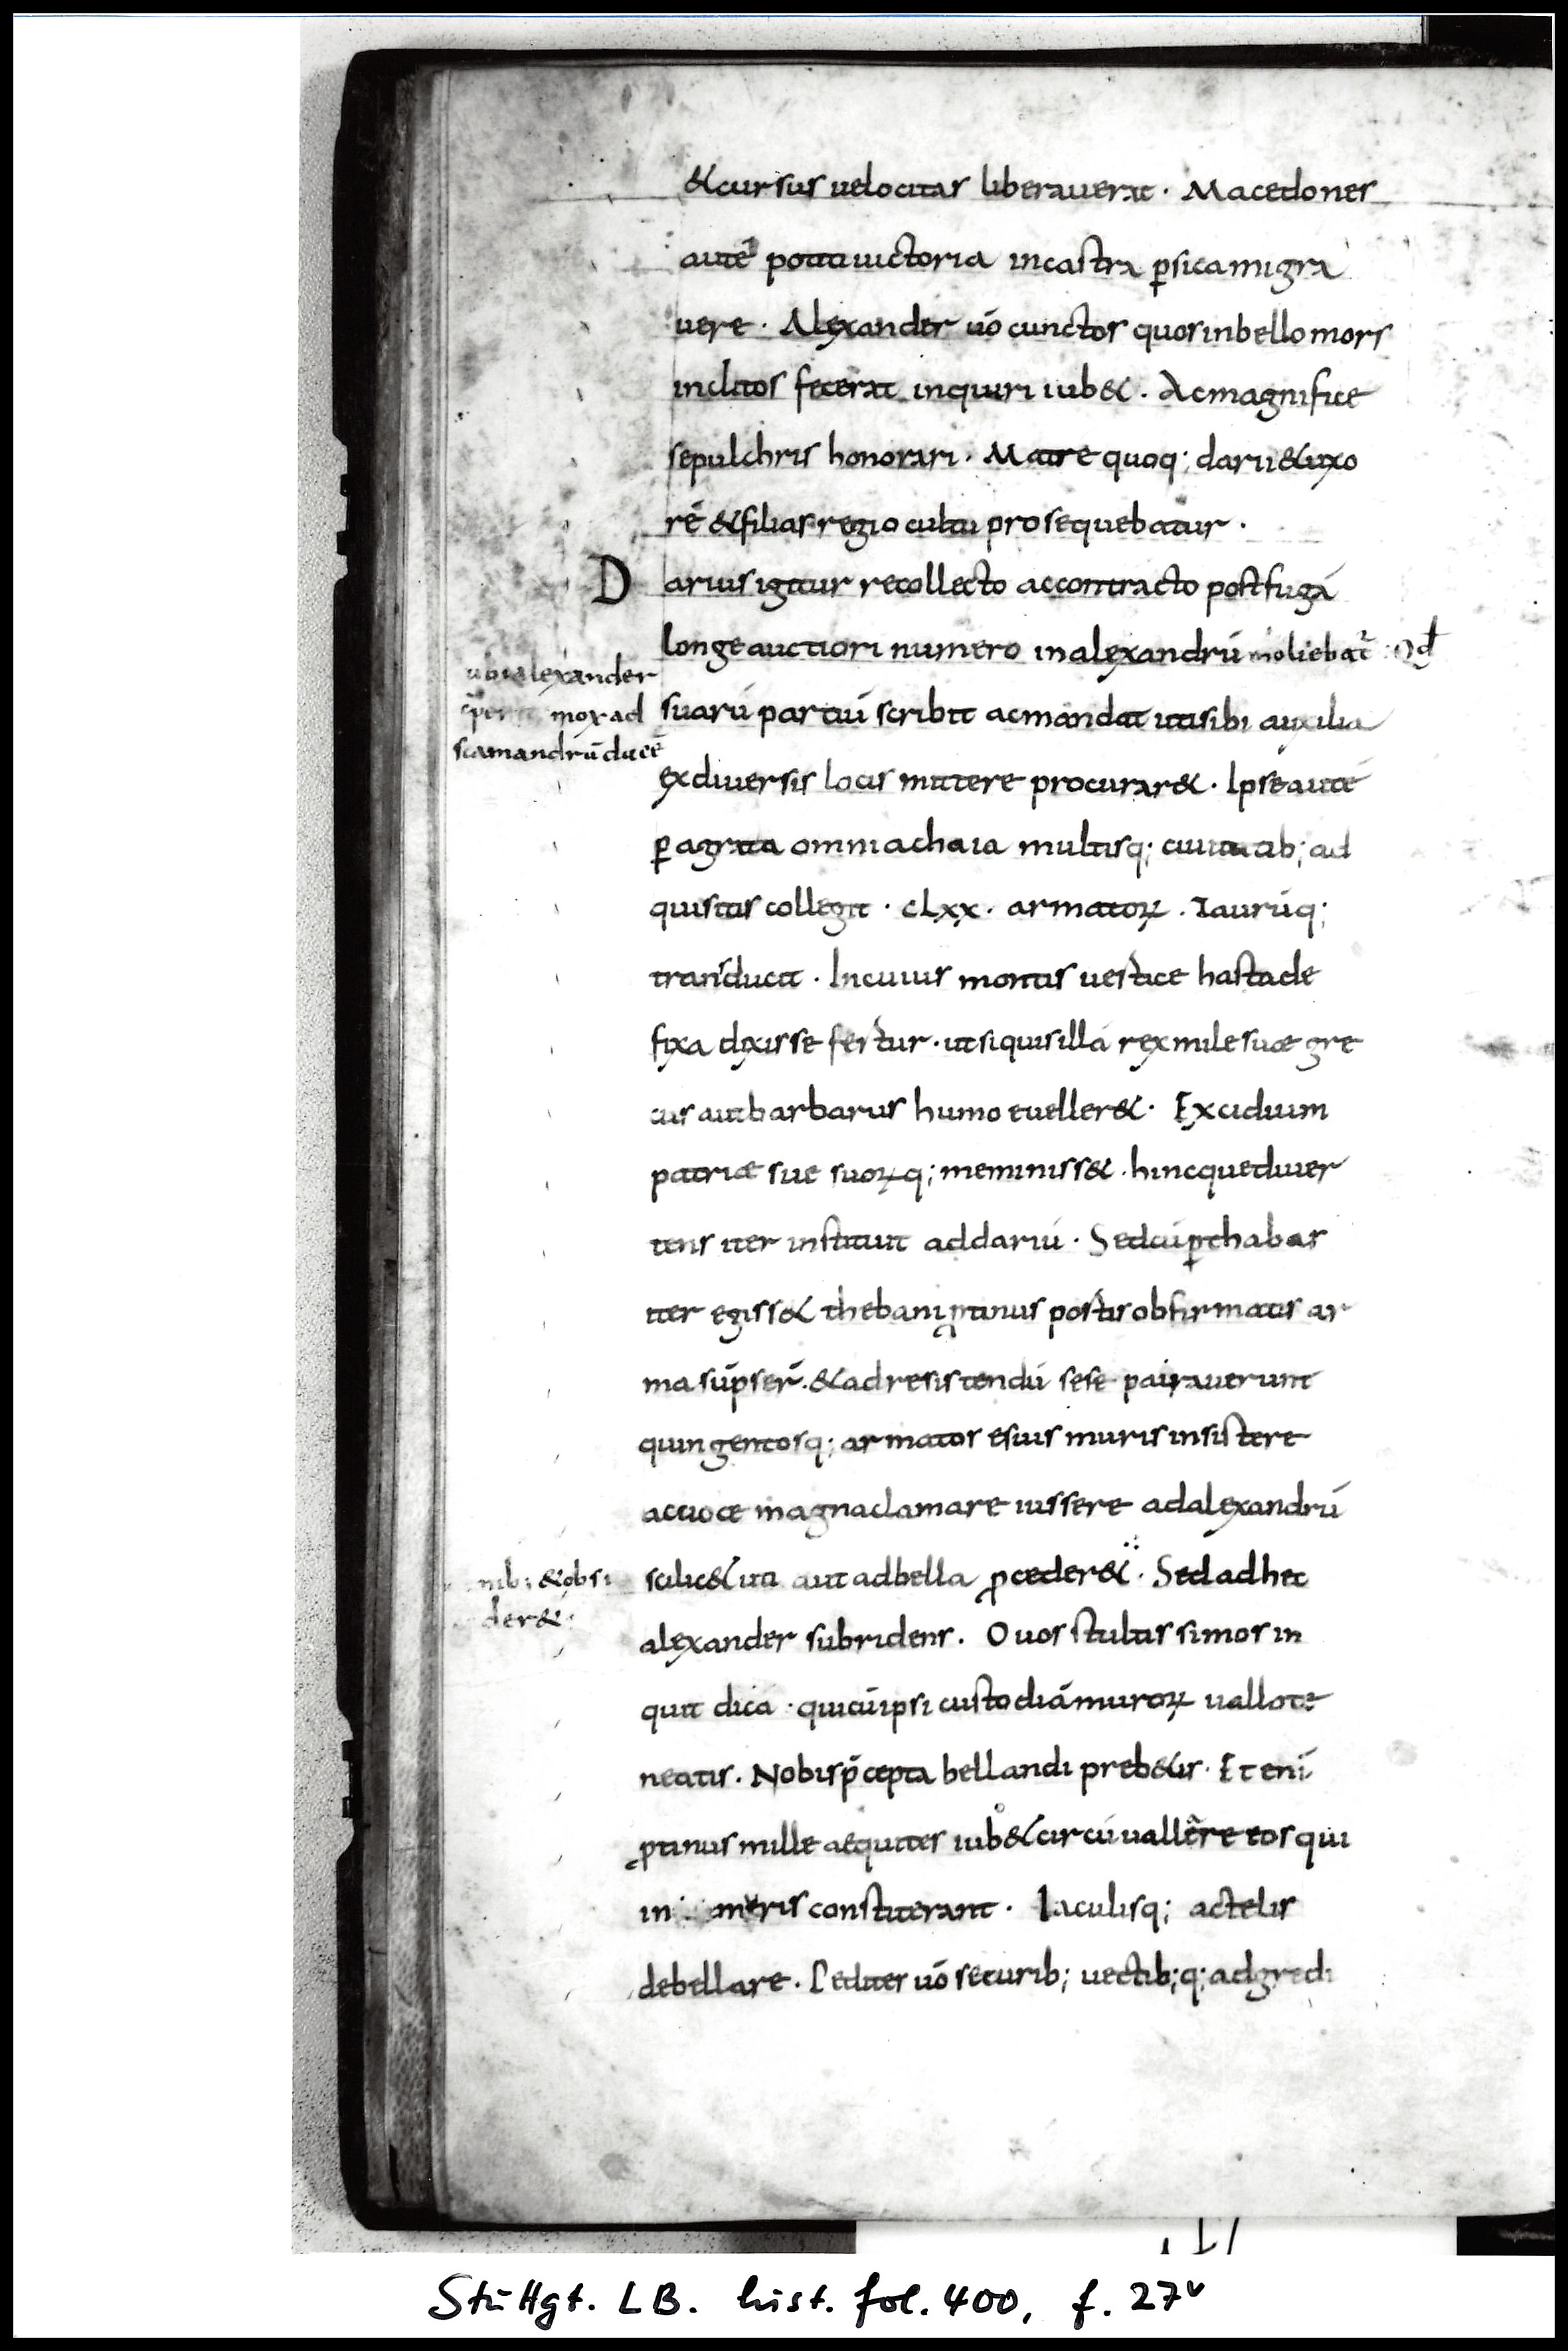 &cursus uelocitas liberauerat · Macedones
autē potiti uictoria incastra ꝑsica migra
uere · Alexander uō cunctos quos in bello mors
inclitos fecerat inquiri iub& · Acmagnifice
sepulchris honorari · Matrē quoq; darii &uxo
rē &filias regio cultu prosequebatur ·
D arius igitur recollecto accontracto post fugā
longe auctiori numero in alexandrū moliebat̄
ubi alexander
mox ad
scamandrū ducē
suarū partiū scribit ac mandat uti sibi auxilia
ex diuersis locis mittere procurar& · Ipse autē
ꝑagrata omni achaia multisq; ciuitatib; ad
quisitis collegit · cLxx · armatoꝝ · Taurūq;
transducit · In cuius montis uertice hasta de
fixa dixisse fertur · ut siquis illā rex miles uæ gre
cus aut barbarus humo eueller& · Excidium
patriæ sue suoꝝq; meminiss& · hincque diuer
tens iter instituit ad dariū · Sed cū ꝑ thabas
iter egiss& thebani ꝓtinus portis obfirmatis ar
ma sūpser̄ · &ad resistendū sese parauerunt
quingentosq; armatos e suis muris insistere
ac uoce magna clamare iussere ad alexandrū
&obsi
der&
scilic& uti aut ad bella ꝓceder& · Sed ad hec
alexander subridens · O uos stultissimos in
quit dicā · qui cū ipsi custodiā muroꝝ uallo te
neatis · Nobis p̄cepta bellandi preb&is · Et enī
ꝓtinus mille æquites iub& circū uallare eos qui
in muris constiterant · Iaculisq; ac telis
debellare · Pedites uō securib; uectib;q; adgredi
Stuttgt. LB. hist. fol. 400, f. 27v